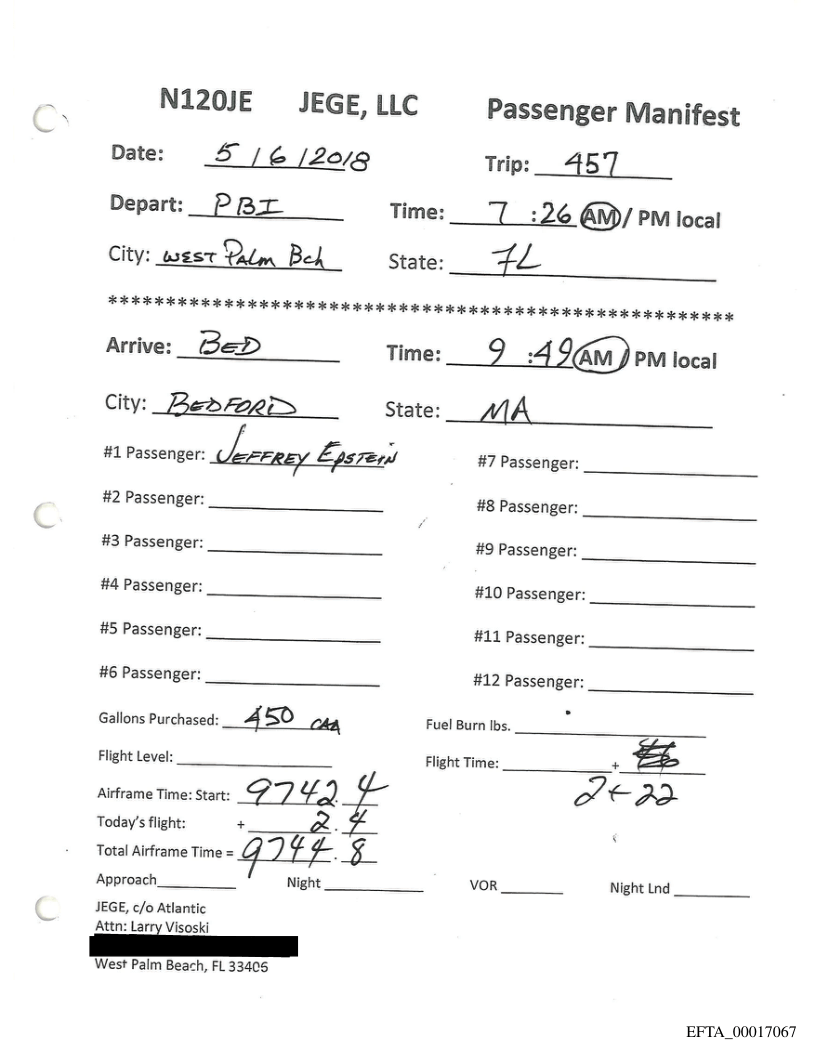 N120JE JEGE, LLC Passenger Manifest
Date: 5/6/2018 Trip: 457
Depart: PBI Time: 7:26 AM / PM local
City: WEST PALM Bch State: FL
******************************************************
Arrive: BED Time: 9:49 AM / PM local
City: BEDFORD State: MA
#1 Passenger: JEFFREY EPSTEIN #7 Passenger:
#2 Passenger: #8 Passenger:
#3 Passenger: #9 Passenger:
#4 Passenger: #10 Passenger:
#5 Passenger: #11 Passenger:
#6 Passenger: #12 Passenger:
Gallons Purchased: 450 CAA Fuel Burn lbs.
Flight Level: Flight Time: +
2+22
Airframe Time: Start: 9742.4
Today's flight: + 2.4
Total Airframe Time = 9744.8
Approach Night VOR Night Lnd
JEGE, c/o Atlantic
Attn: Larry Visoski
West Palm Beach, FL 33406
EFTA_00017067